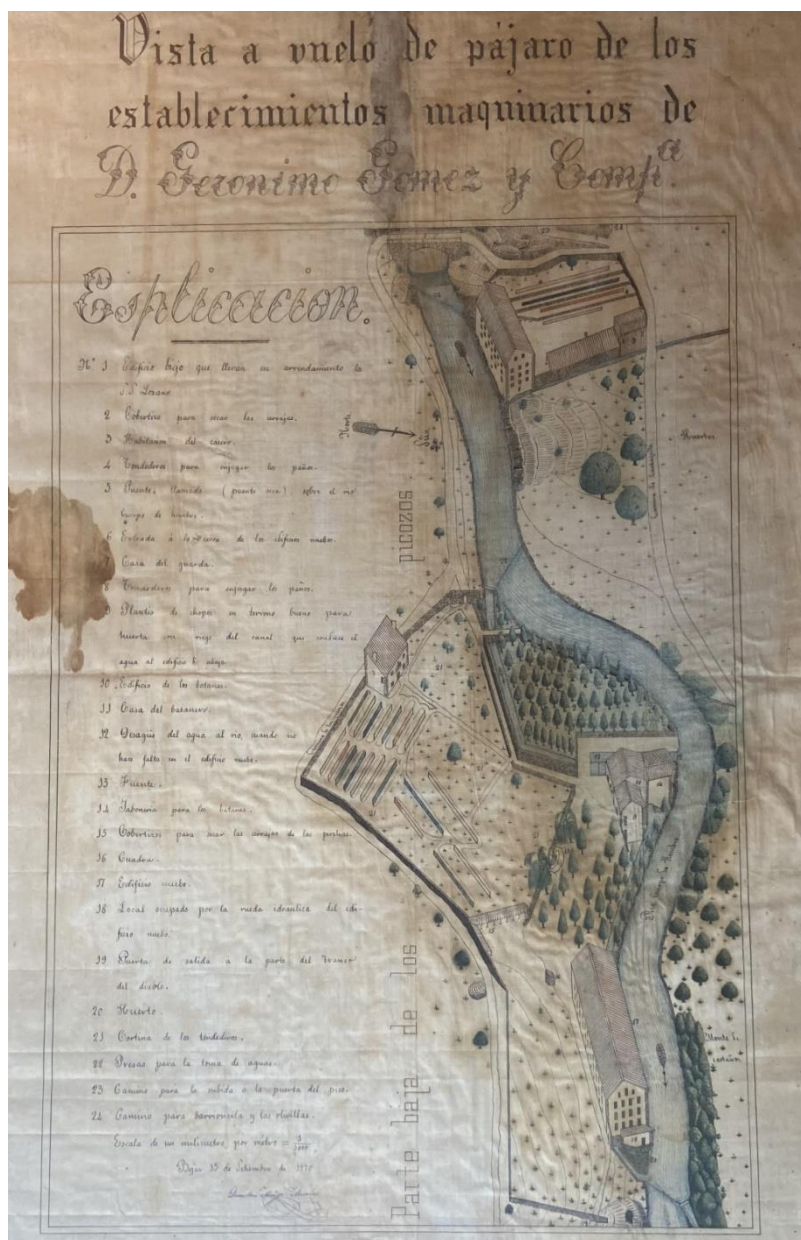 Vista a vuelo de pájaro de los
establecimientos maquinarios de
D. Geronimo Gomez y Compª.
Esplicacion.
Nº 1 Edificio bajo que llevan en arrendamiento la
S.S. Lozano
2 Cobertizo para secar las arrojas.
3 Habitacion del casero.
4 Tendederos para enjugar los paños.
5 Puente, llamado (puente nuevo) sobre el rio
Cuerpo de hombre.
6 Entrada á la cerca de los edificios nuebos.
7 Casa del guarda.
8 Tendederos para enjugar los paños.
9 Plantio de chopos en terreno bueno para
huerta con riego del canal que conduce el
agua al edificio de abajo
10 Edificio de los batanes.
11 Casa del batanero.
12 Desagüe del agua al rio, cuando no
hace falta en el edificio nuebo.
13 Fuente.
14 Jaboneria para los batanes.
15 Cobertizos para secar las arrojas de las perchas.
16 Cuadra.
17 Edificio nuebo.
18 Local ocupado por la rueda idraulica del edi-
ficio nuebo.
19 Puerta de salida a la parte del
del diablo.
20 Huerto.
21 Cortina de los tendederos.
22 Presas para la toma de aguas.
23 Camino para la subida a la puerta del pico.
24 Camino para barroneila y las olivillas.
Escala de un milimetro por metro =
Bejar 15 de Setiembre de
Norte
Sur
picozos
Parte baja de los
Huertas
Monte de
castaños